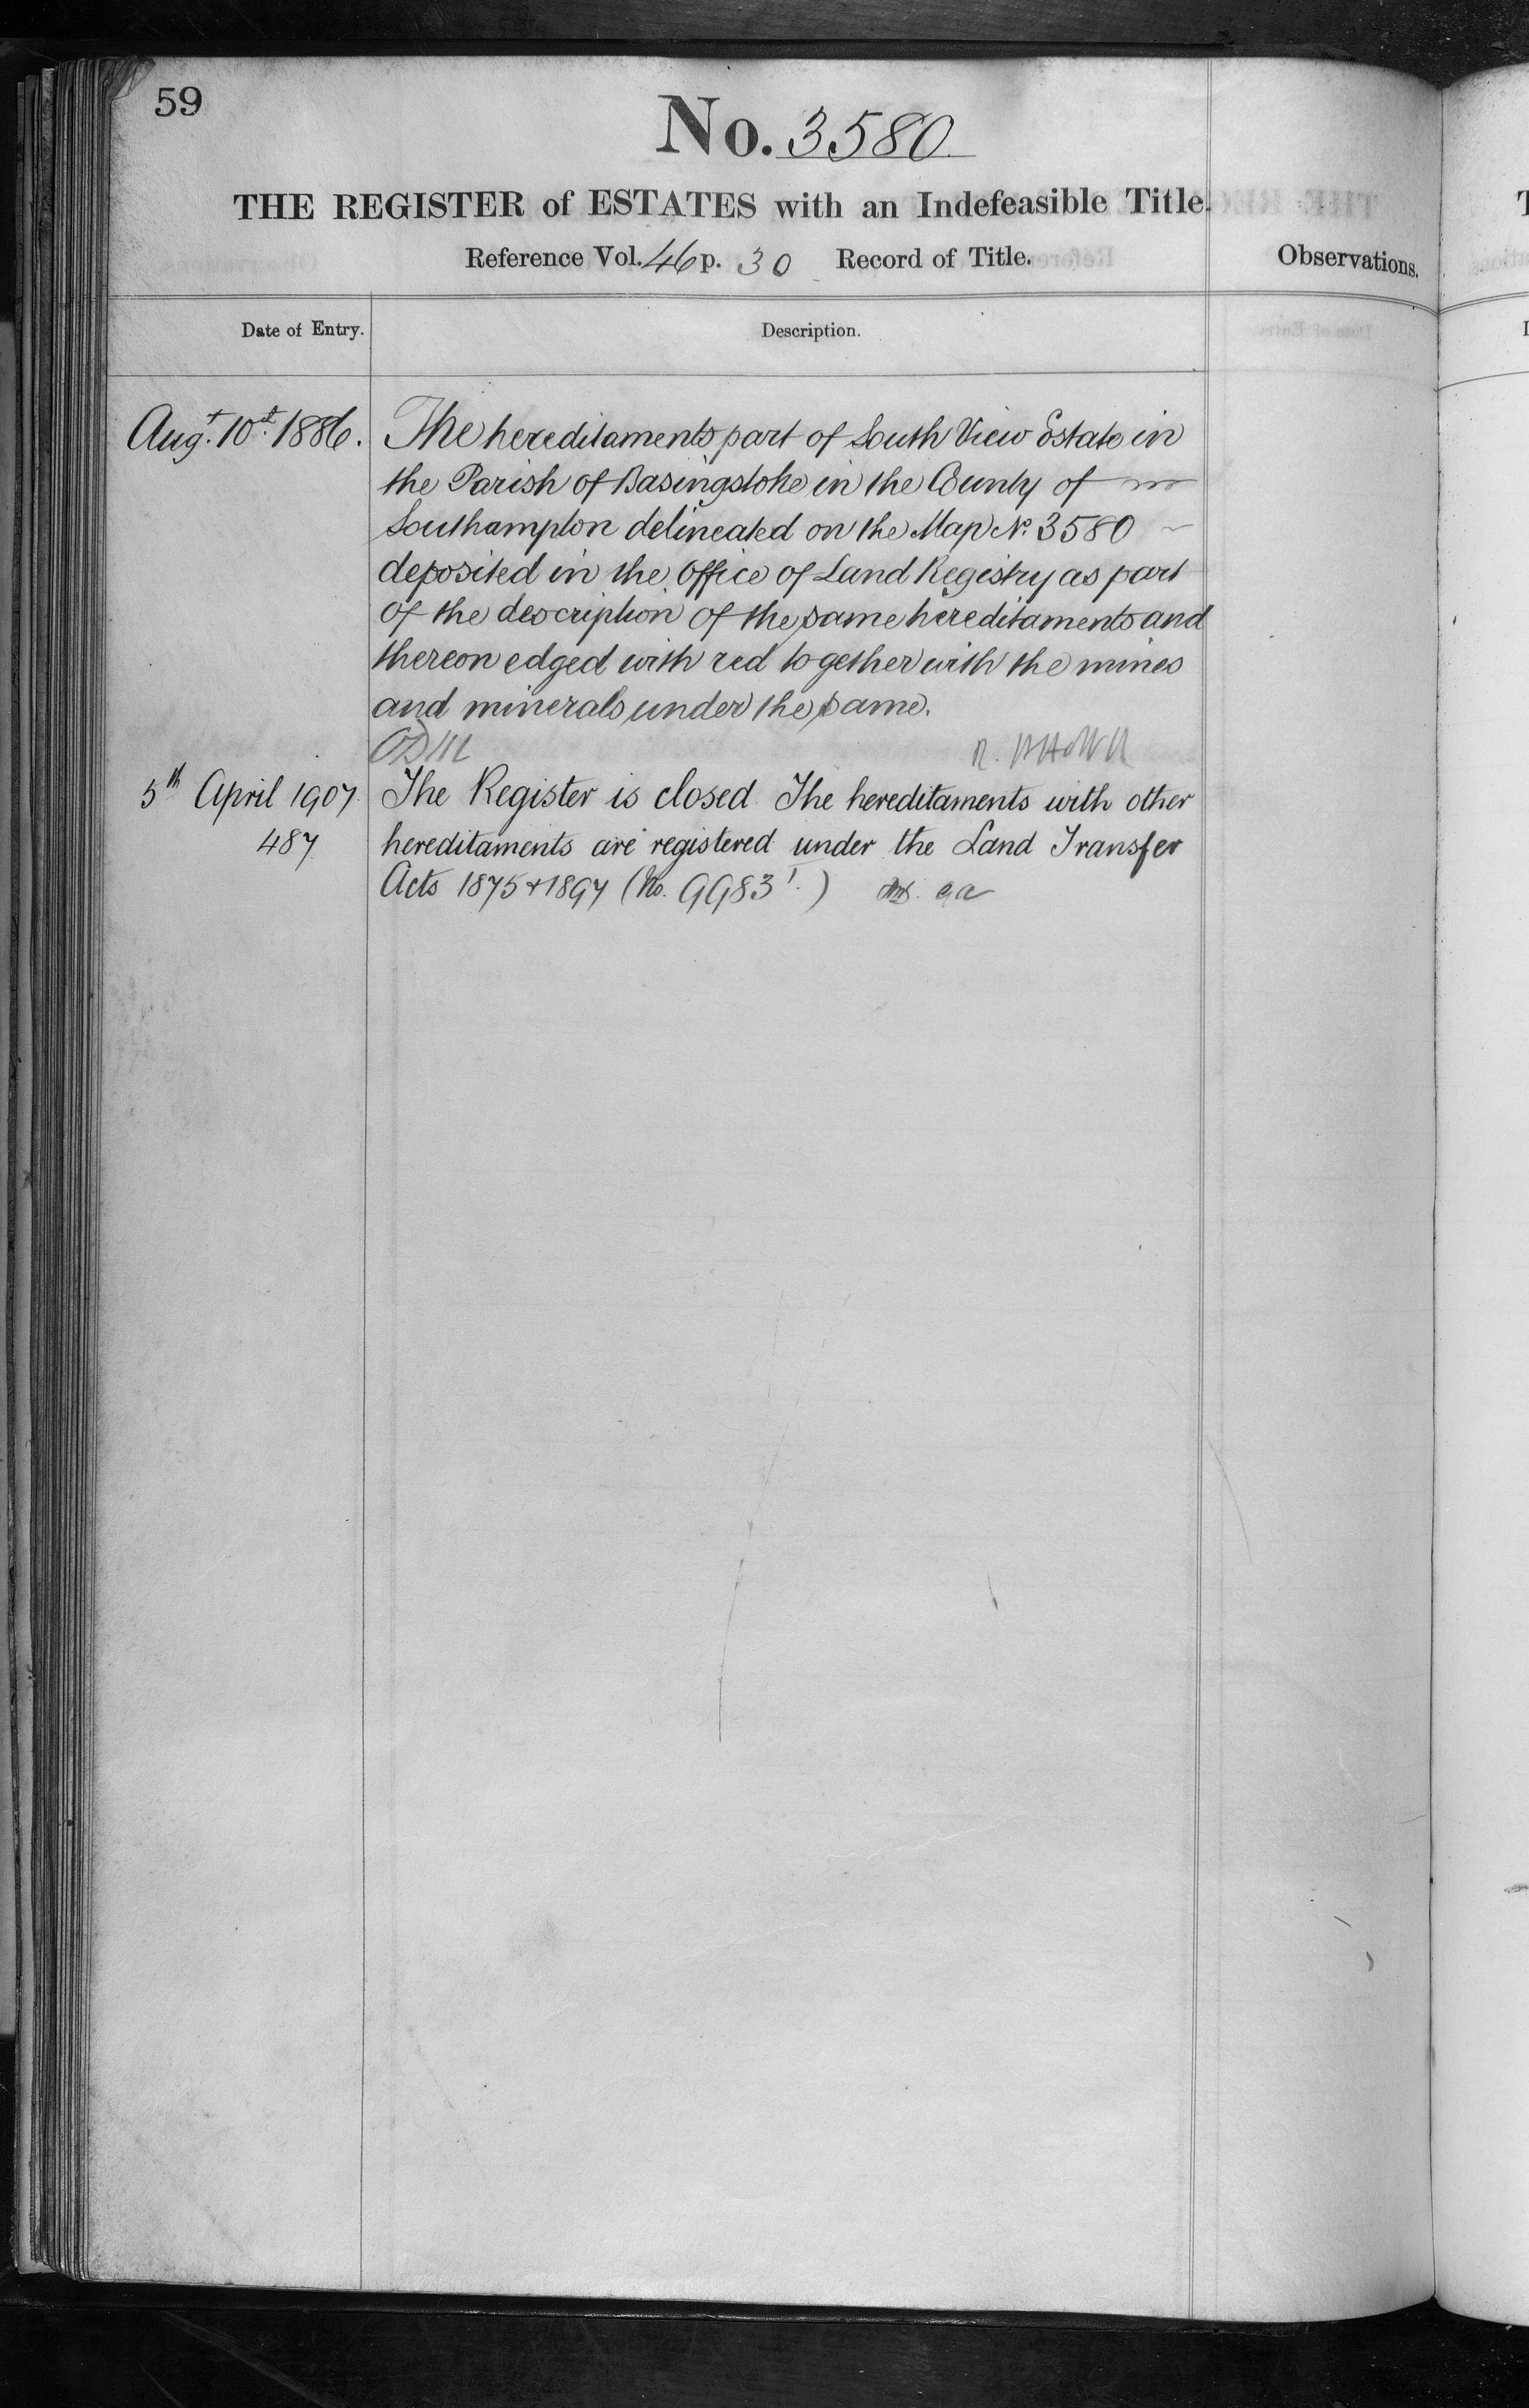 59
No. 3580.
THE REGISTER of ESTATES with an Indefeasible Title.
Reference Vol. 46 p. 30 Record of Title.
Observations.
Date of Entry.
Description.
Augt. 10th. 1886.
The hereditaments part of South View Estate in
the Parish of Basingstoke in the County of
Southampton delineated on the Map No. 3580
deposited in the Office of Land Registry as part
of the description of the same hereditaments and
thereon edged with red together with the mines
and minerals under the same.
5th April 1907.
487
The Register is closed. The hereditaments with other
hereditaments are registered under the Land Transfer
Acts 1875 & 1897 (No. 9983 I.)